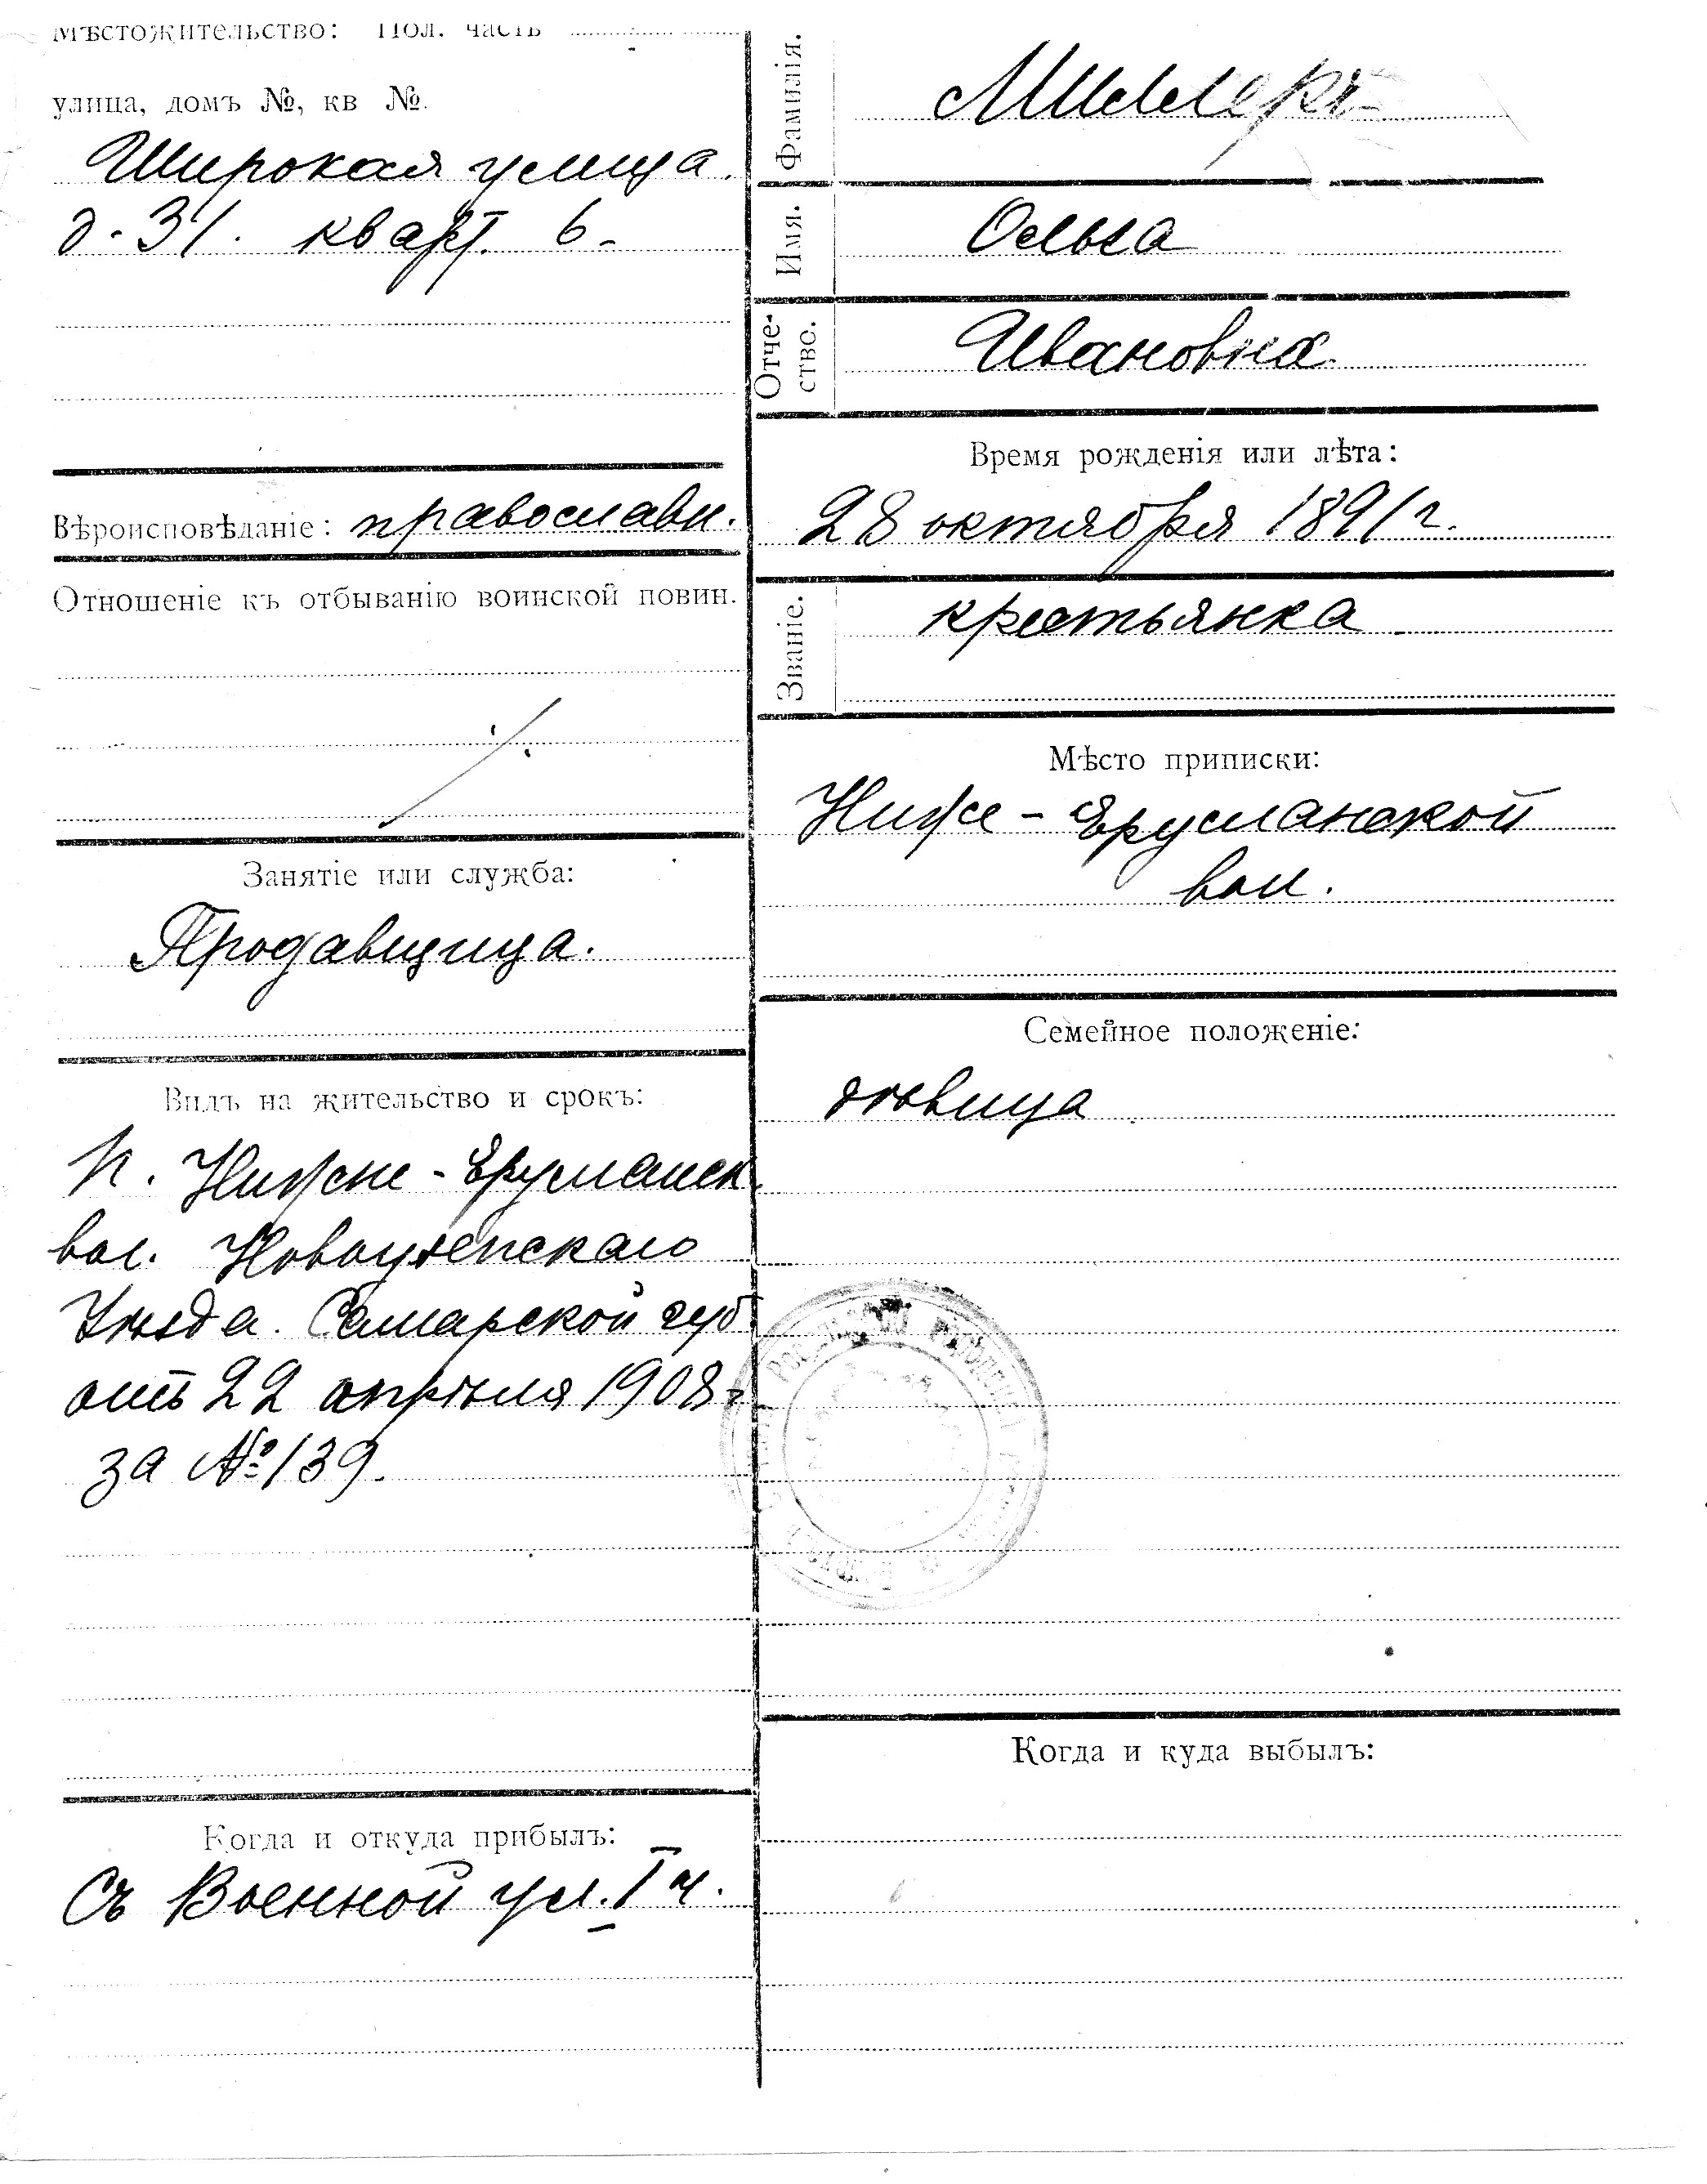 Мѣстожительство: Пол. часть
улица, домъ №, кв №.
Широкая улица.
д. 31. кварт. 6.
Вѣроисповѣданіе: православн.
Отношеніе къ отбыванію воинской повин.
Занятіе или служба:
Продавщица.
Видъ на жительство и срокъ:
п. Нижне-Ерусланск.
вол. Новоузенскаго
Уѣзда. Самарской губ.
отъ 22 апрѣля 1908 г.
за № 139.
Когда и откуда прибылъ:
Съ Военной ул. I ч.
Фамилія. Миллеръ
Имя. Ольга
Отче-
ство. Ивановна.
Время рожденія или лѣта:
28 октября 1891 г.
Званіе. крестьянка
Мѣсто приписки:
Ниже-Ерусланской
вол.
Семейное положеніе:
дѣвица
Когда и куда выбылъ: